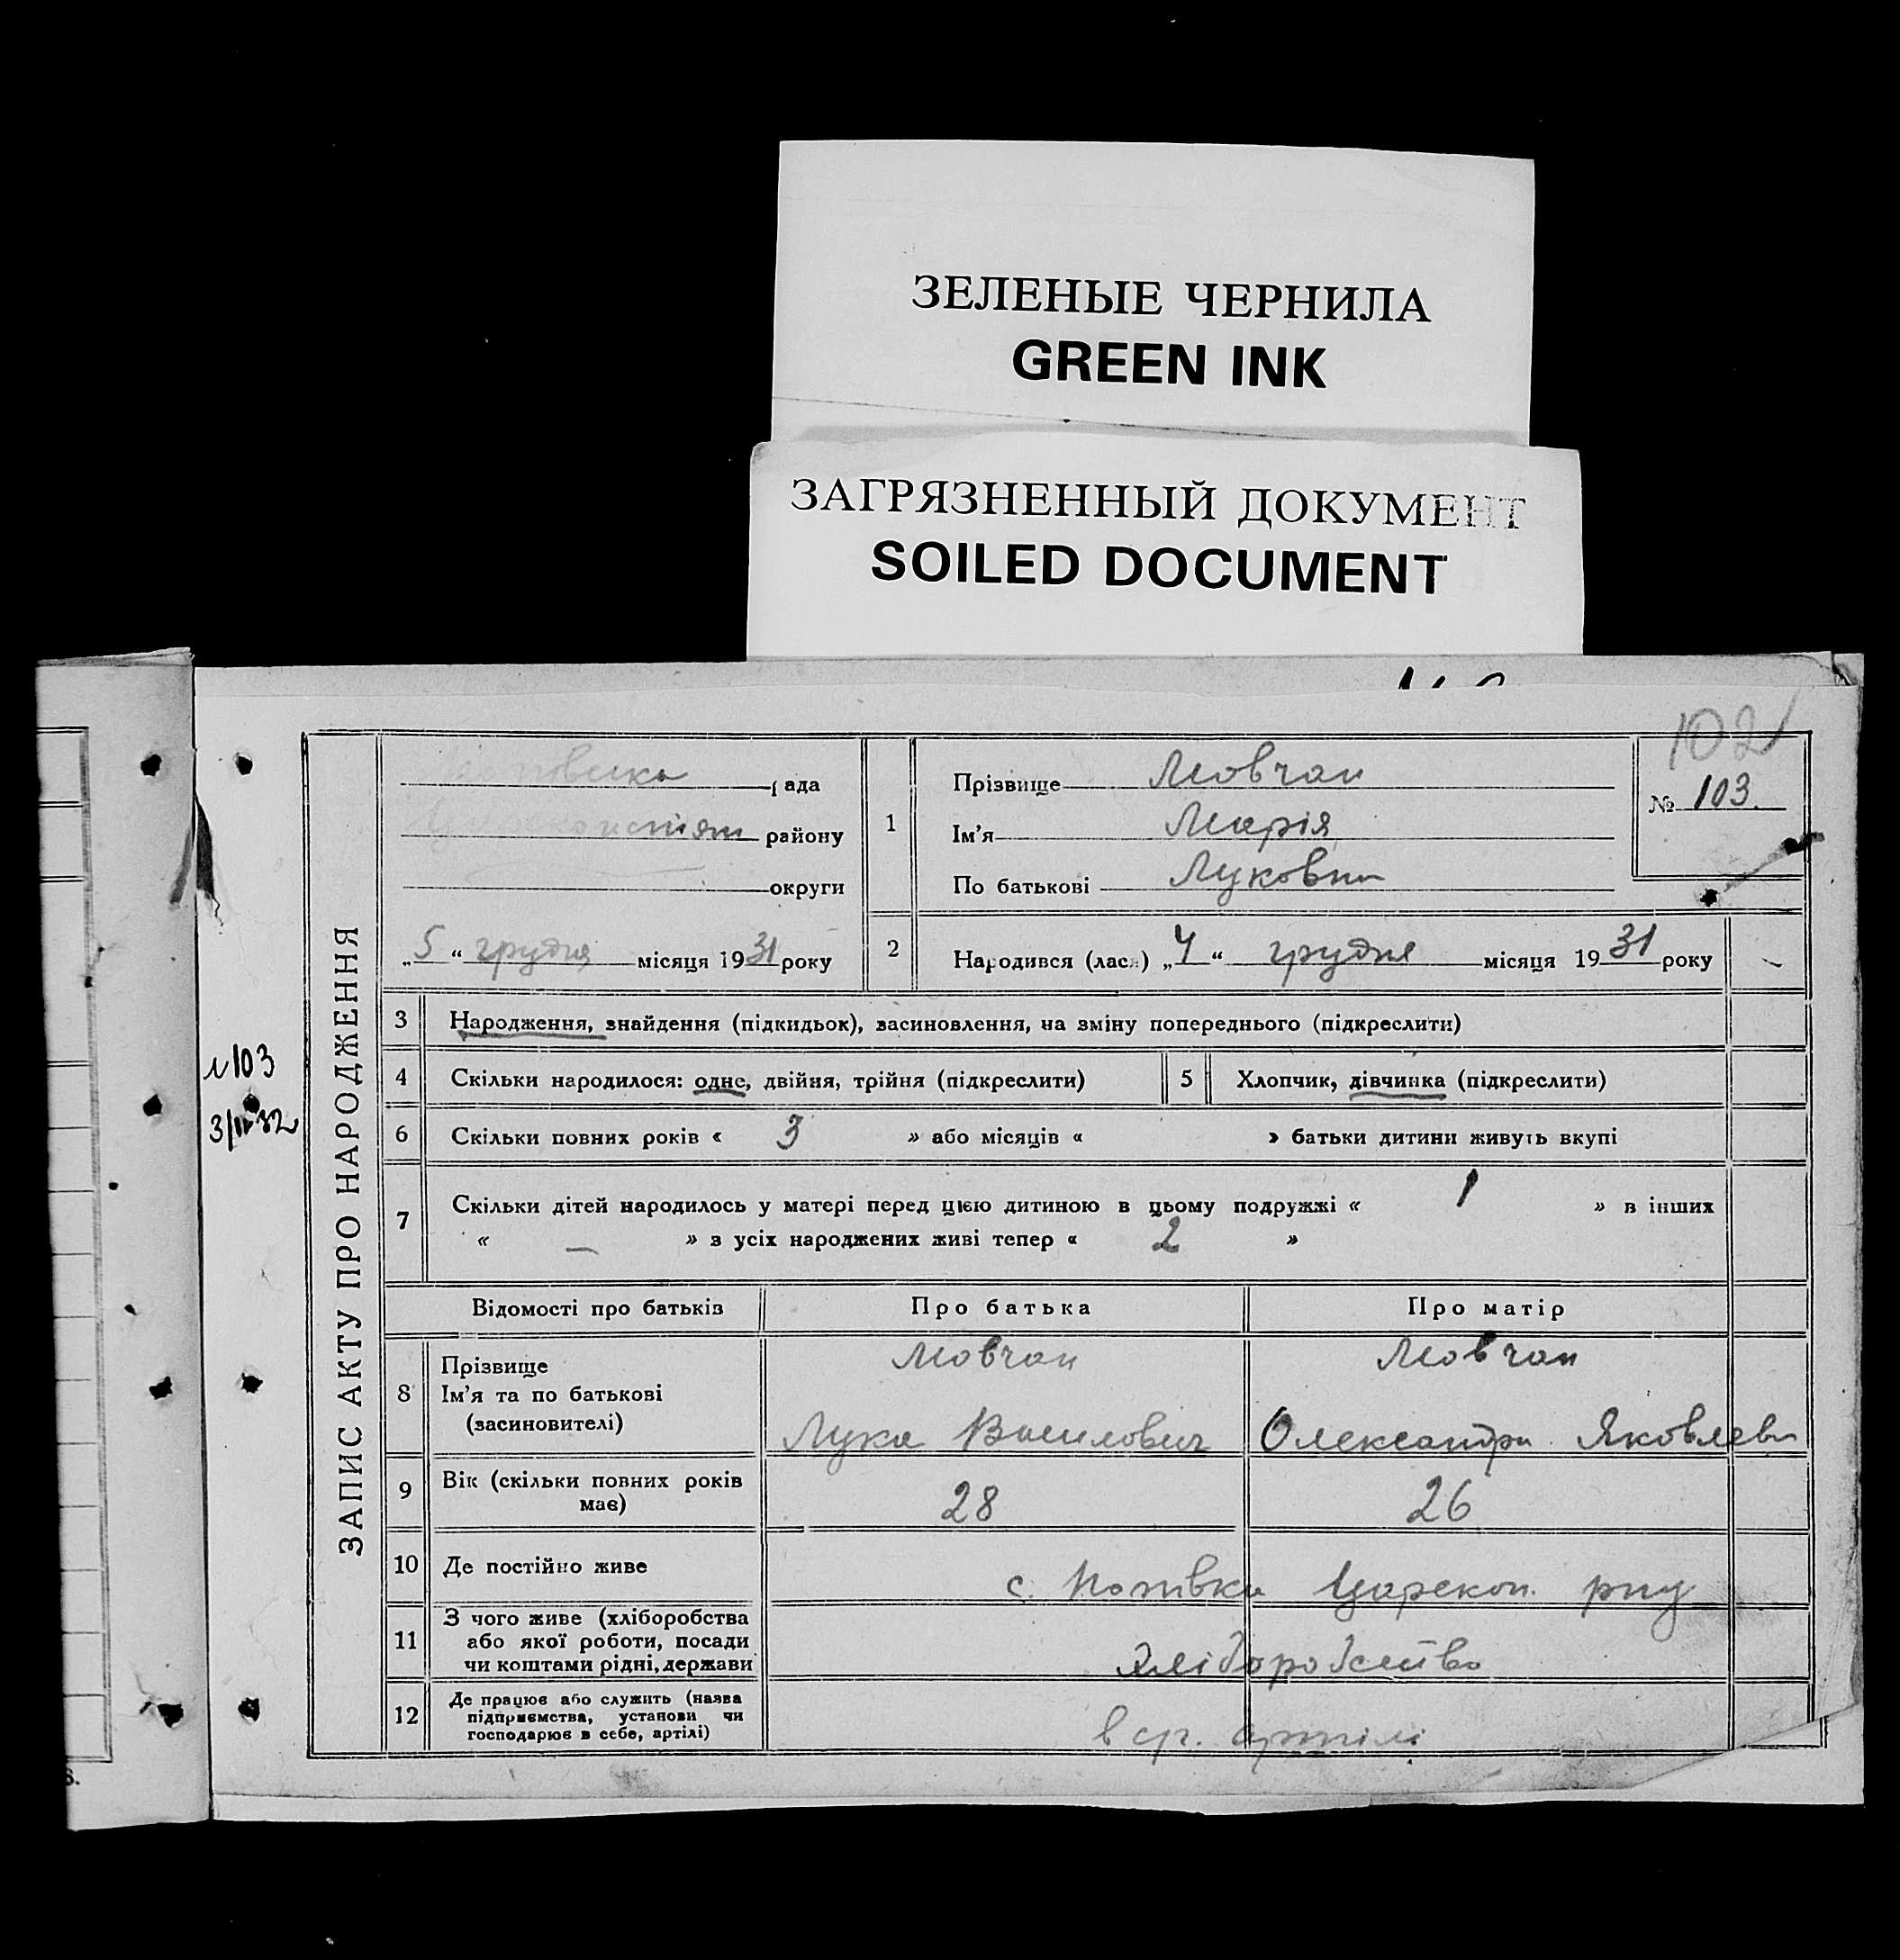 ЗЕЛЕНЫЕ ЧЕРНИЛА
GREEN INK
ЗАГРЯЗНЕННЫЙ ДОКУМЕНТ
SOILED DOCUMENT
102
№ 103.
ЗАПИС АКТУ ПРО НАРОДЖЕННЯ
№103
3/II-32
рада
району
округи
„5“ грудня місяця 1931 року
1
Прізвище Мовчан
Ім'я Марія
По батькові Луковна
2 Народився (лася) „4“ грудня місяця 1931 року
3 Народження, знайдення (підкидьок), засиновлення, на зміну попереднього (підкреслити)
4 Скільки народилося: одне, двійня, трійня (підкреслити) 5 Хлопчик, дівчинка (підкреслити)
6 Скільки повних років « 3 » або місяців « » батьки дитини живуть вкупі
7 Скільки дітей народилось у матері перед цією дитиною в цьому подружжі « 1 » в інших
« — » з усіх народжених живі тепер « 2 »
Відомості про батьків Про батька Про матір
8 Прізвище Мовчан Мовчан
Ім'я та по батькові
(засиновителі) Лука Василович Олександра Яковлевн
9 Вік (скільки повних років
має) 28 26
10 Де постійно живе с. Попівка Царекон. р-ну
11 З чого живе (хліборобства
або якої роботи, посади
чи коштами рідні, держави хліборобство
12 Де працює або служить (назва
підприємства, установи чи
господарює в себе, артілі) в с.г. артілі